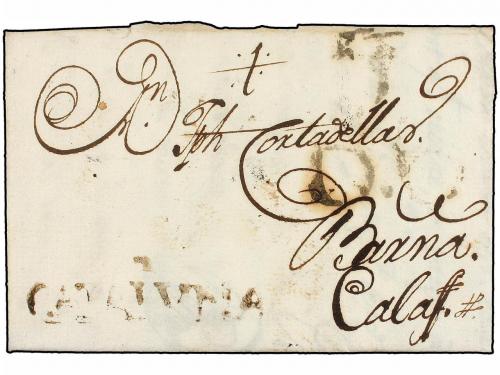 A Dn
Jph Cortadellas.
Barna.
Calaff.
CATALVÑA